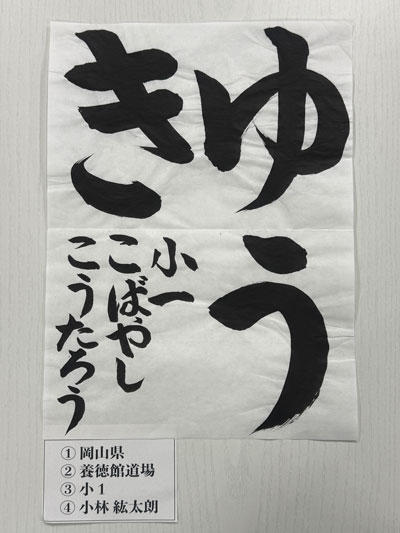 ゆう
き
小一
こばやし
こうたろう
① 岡山県
② 養徳館道場
③ 小1
④ 小林 紘太朗